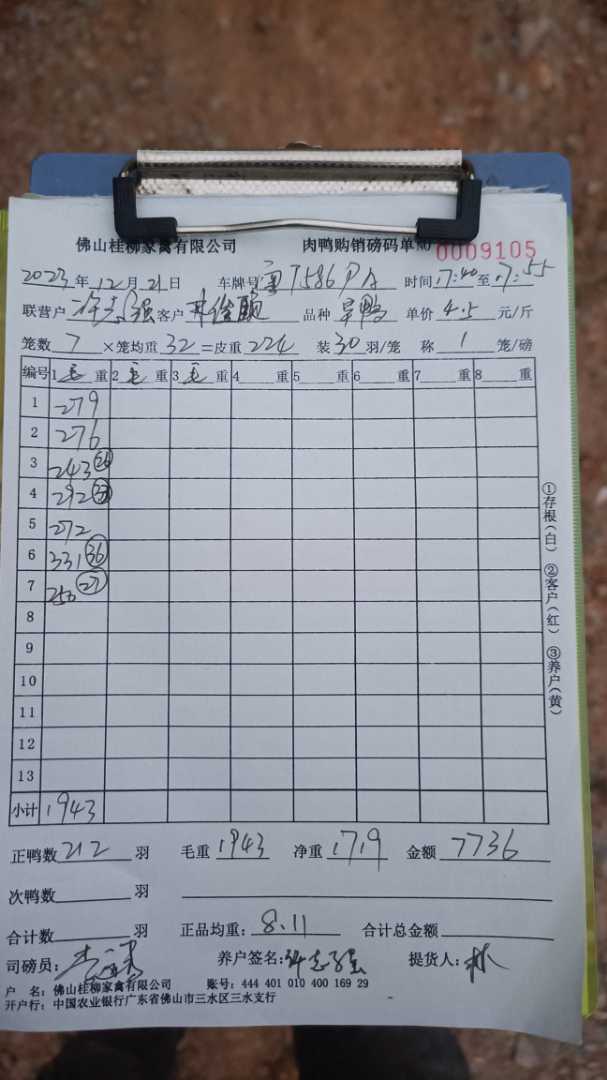 佛山桂柳家禽有限公司 肉鸭购销磅码单 No 0009105
2023年12月21日 车牌号 粤T586PA 时间17:40至17:55
联营户 许志强 客户 林 品种 旱鸭 单价 4.5 元/斤
笼数 7 ×笼均重 32 =皮重 224 装 30 羽/笼 称 1 笼/磅
编号 1 毛 重 2 毛 重 3 毛 重 4 重 5 重 6 重 7 重 8 重
1 279
2 276
3 243 26
4 292
5 272
6 331 36
7 250 27
8
9
10
11
12
13
小计 1943
①存根(白) ②客户(红) ③养户(黄)
正鸭数 212 羽 毛重 1943 净重 1719 金额 7736
次鸭数 羽
合计数 羽 正品均重: 8.11 合计总金额
司磅员: 养户签名: 许志强 提货人: 林
户 名: 佛山桂柳家禽有限公司 账号: 444 401 010 400 169 29
开户行: 中国农业银行广东省佛山市三水区三水支行